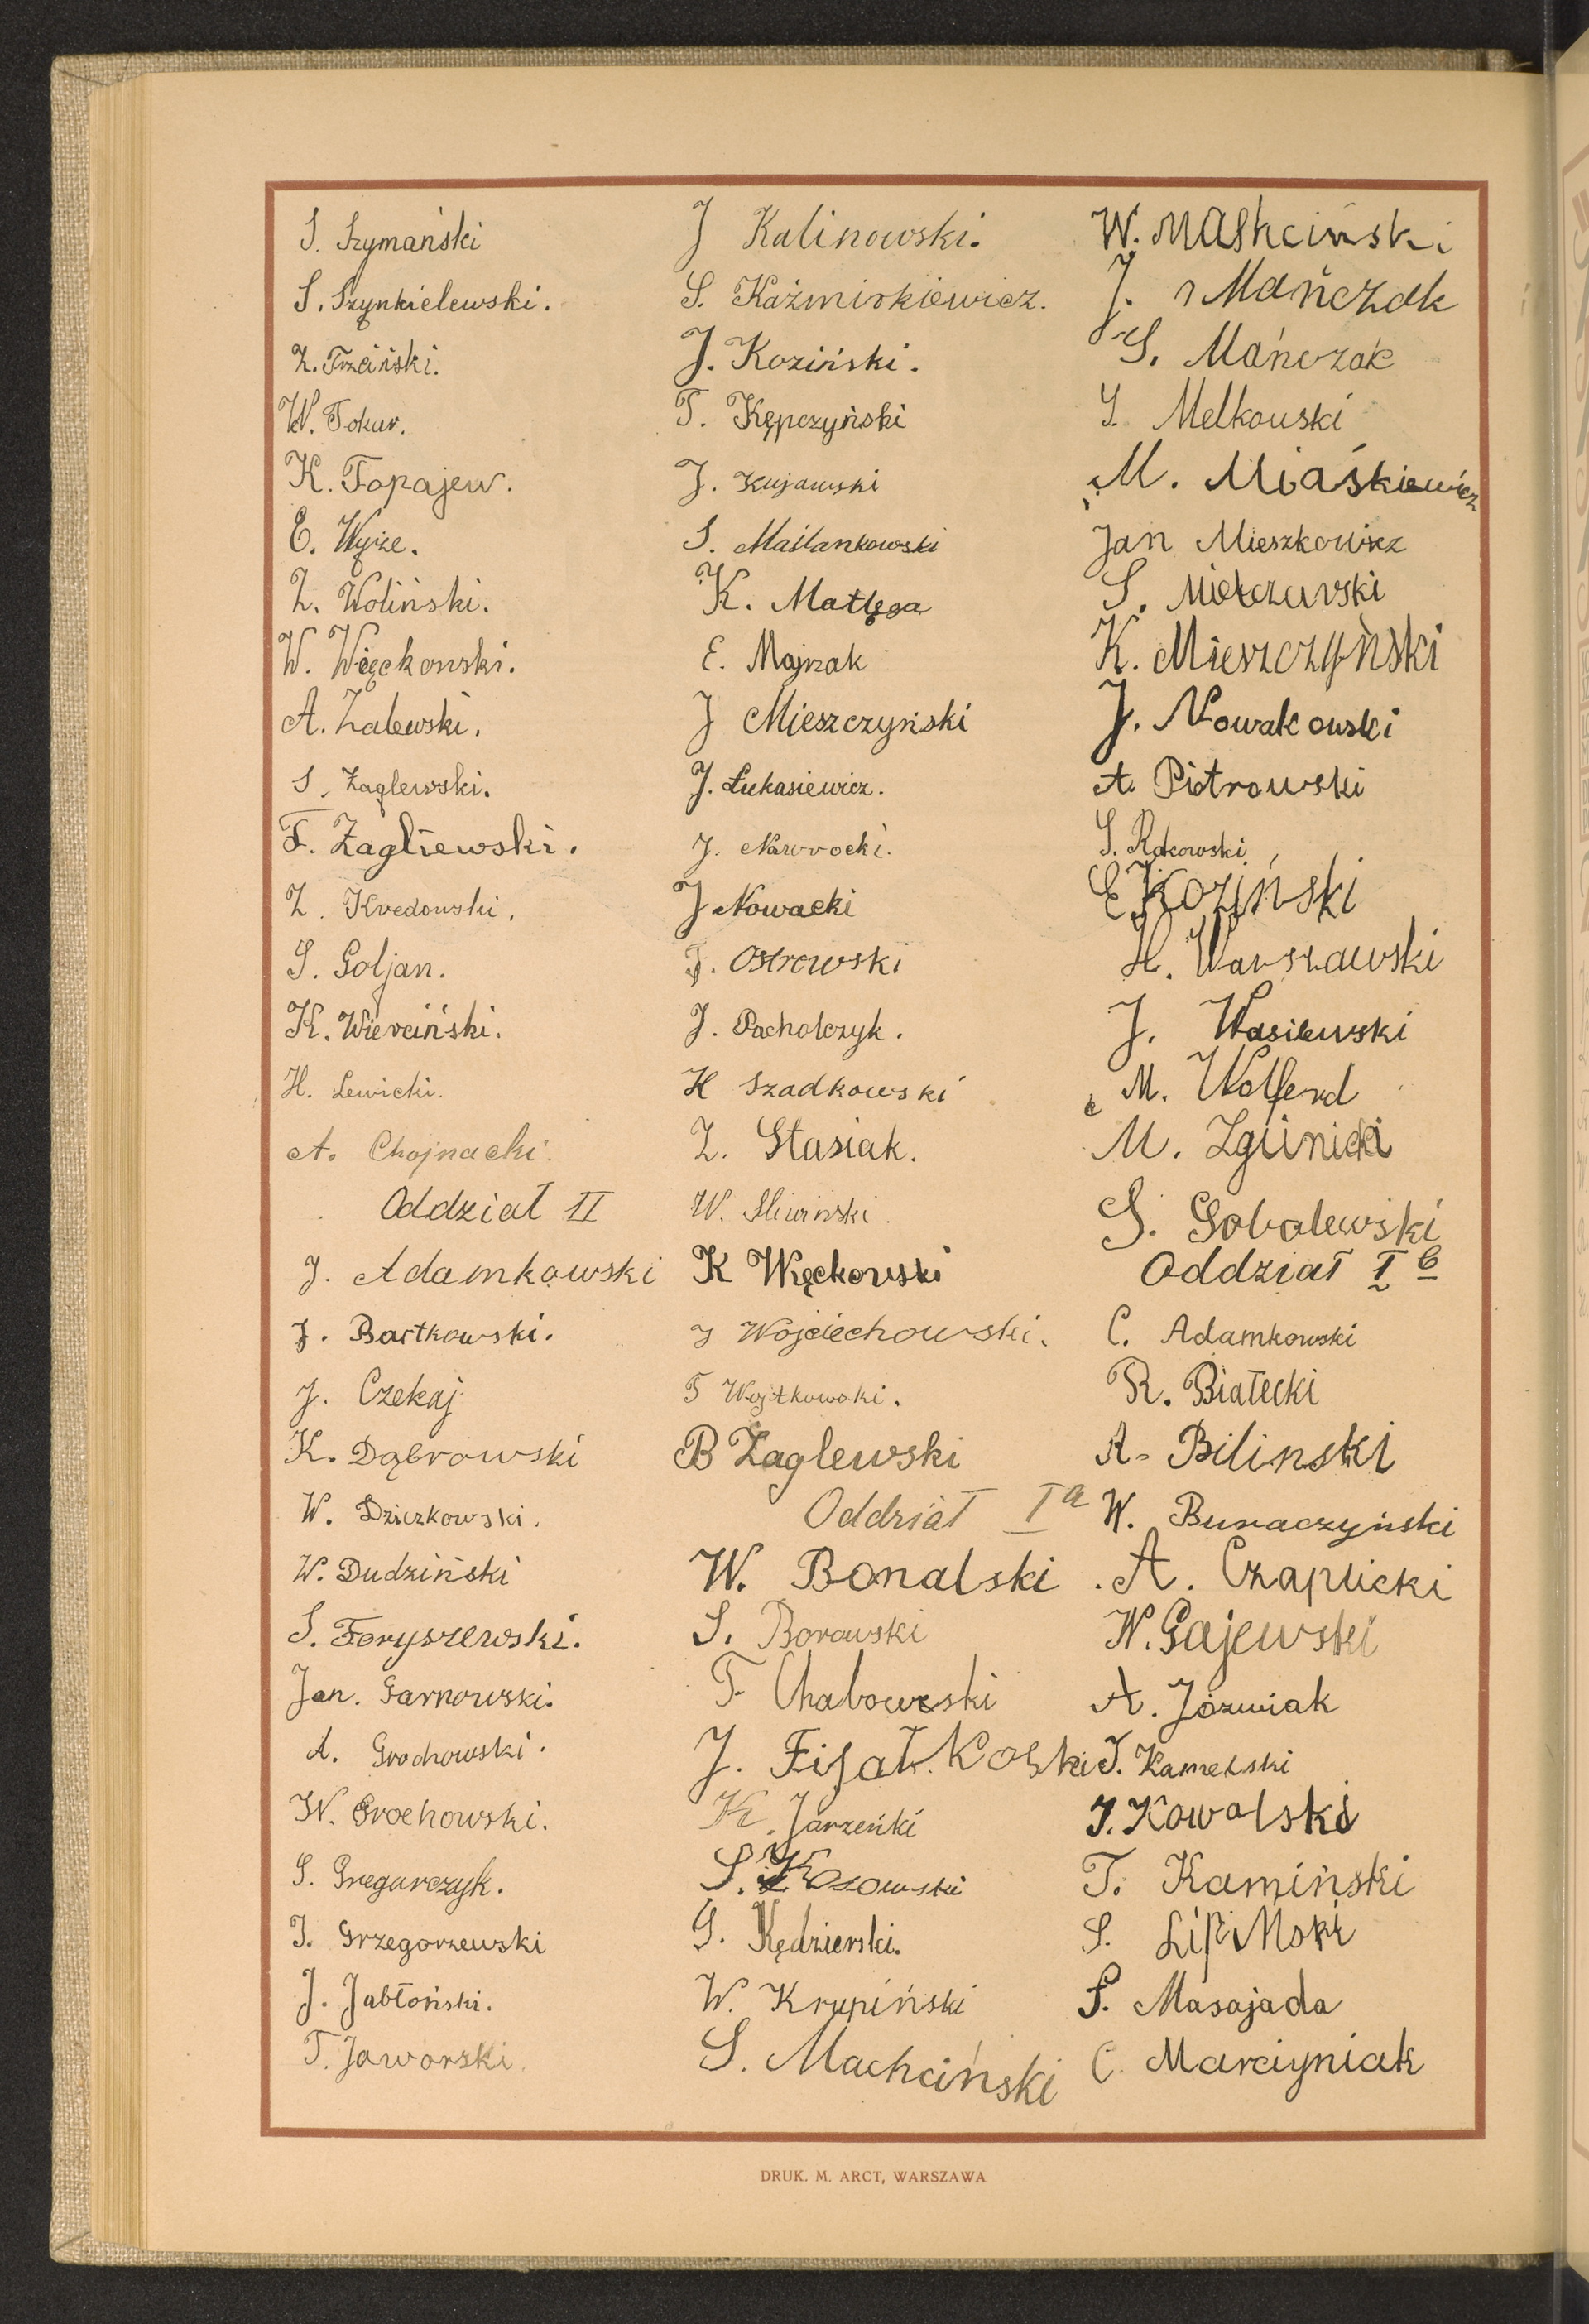 S. Szymański
S. Szynkielewski.
Z. Trzciński.
W. Tokar.
K. Topajew.
E. Wyże.
Z. Woliński.
W. Więckowski.
A. Zalewski.
S. Żaglewski.
F. Żagliewski.
Z. Kredowski.
S. Goljan.
K. Wierciński.
H. Lewicki.
A. Chojnacki.
Oddział II
J. Adamkowski
J. Bartkowski.
J. Czekaj
K. Dąbrowski
W. Dziczkowski.
W. Dudziński
S. Foryszewski.
Jan. Garnowski.
A. Grochowski.
W. Grochowski.
S. Gregurczyk.
J. Grzegorzewski
J. Jabłoński.
T. Jaworski.
J Kalinowski.
S. Kaźmirkiewicz.
J. Koziński.
T. Kępczyński
J. Kujawski
S. Maślankowski
K. Matlęga
E. Majzak
J Mieszczyński
J. Łukasiewicz.
J. Nawrocki.
J Nowacki
F. Ostrowski
J. Pacholczyk.
H Szadkowski
Z. Stasiak.
W. Sliwiński.
K Więckowski
J Wojciechowski.
T Wojtkowski.
B Żaglewski
Oddział I a
W. Bonalski
S. Borowski
T. Chabowski
J. Fijałkoski
K. Jarzeński
S. Kosowski
S. Kędzierski.
W. Krupiński
S. Machciński
W. Mashciński
J. Mańczak
S. Mańczak
S. Melkowski
M. Miaśkiewicz
Jan Mieszkowicz
S. Mielczarski
K. Mieszczyński
J. Nowakowski
A. Piotrowski
S. Rakowski
E Koziński
H. Warszawski
J. Wasilewski
M. Wolferd
M. Zglinicki
S. Sobolewski
Oddział I b
C. Adamkowski
R. Białecki
A. Bilinski
W. Buraczyński
A. Czaplicki
W. Gajewski
A. Jóźwiak
J. Kamelski
J. Kowalski
T. Kamiński
S. Lipiński
S. Masajada
C. Marciyniak
DRUK. M. ARCT, WARSZAWA